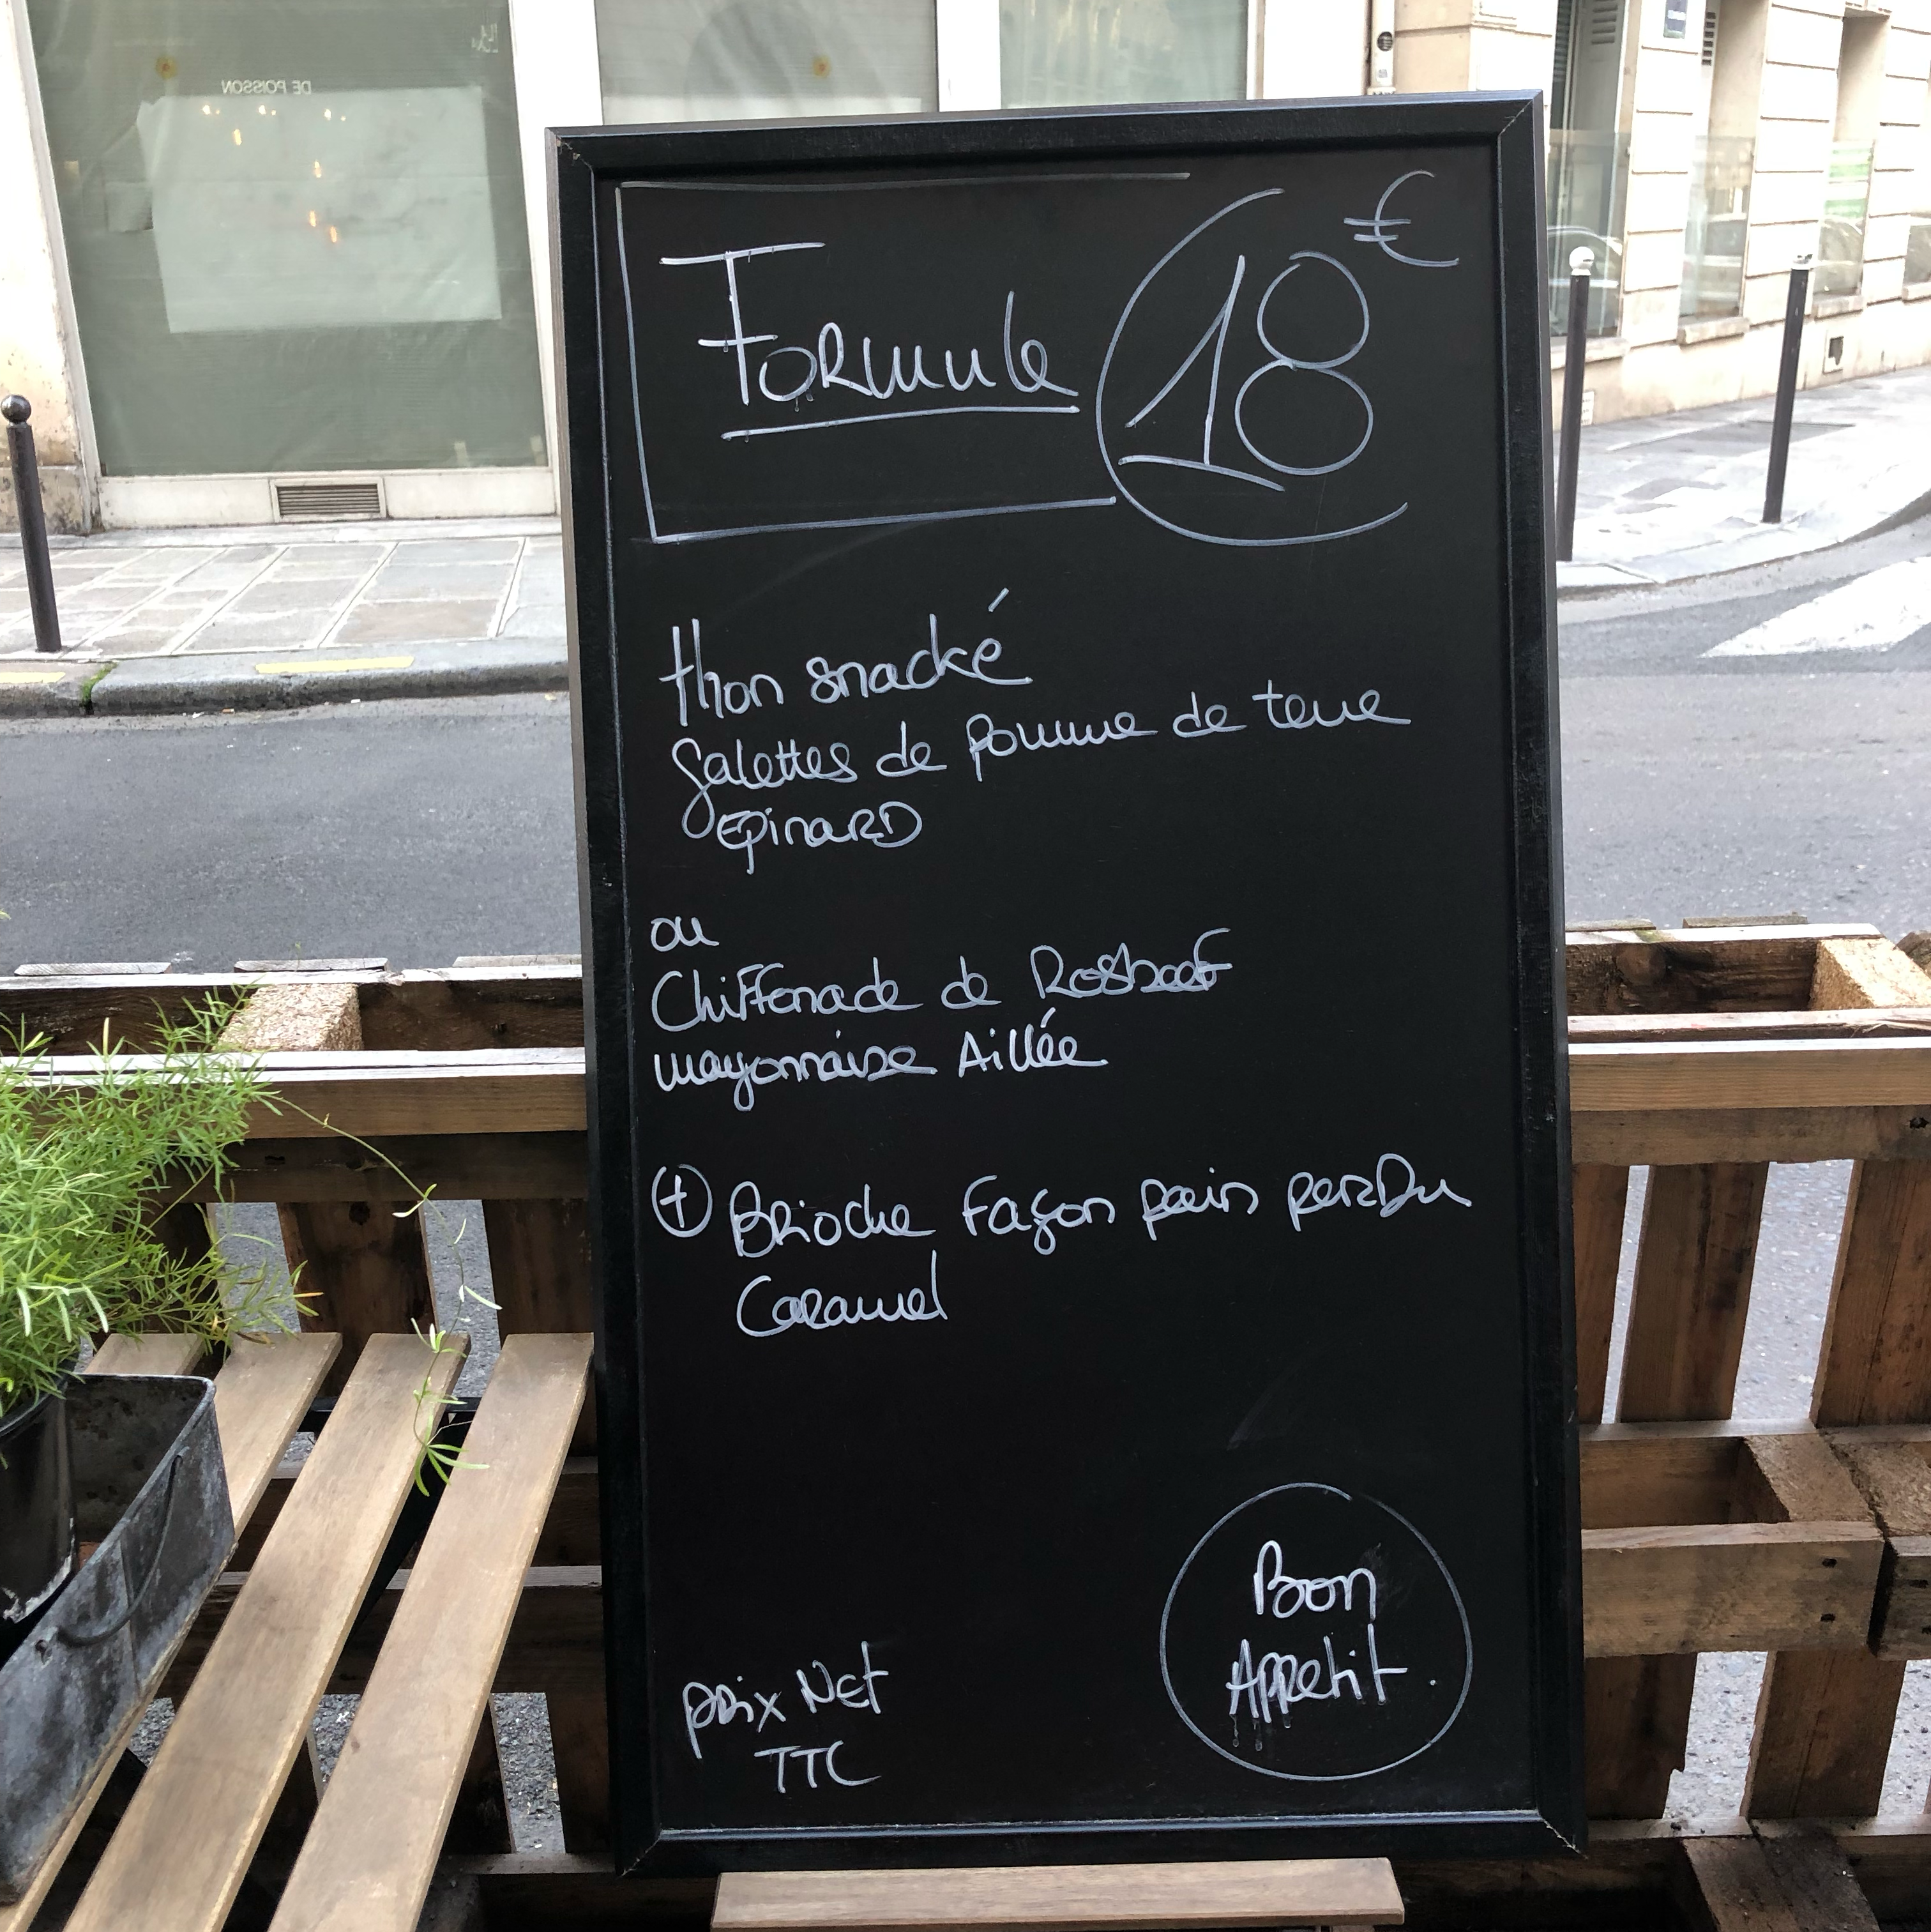 DE POISSON
Formule 18 €
thon snacké
galettes de pomme de terre
EpinarD
ou
Chiffonade de Rosbeef
mayonnaise Aillée
+ Brioche Façon pain perDu
Caramel
Bon
Appetit.
prix Net
TTC